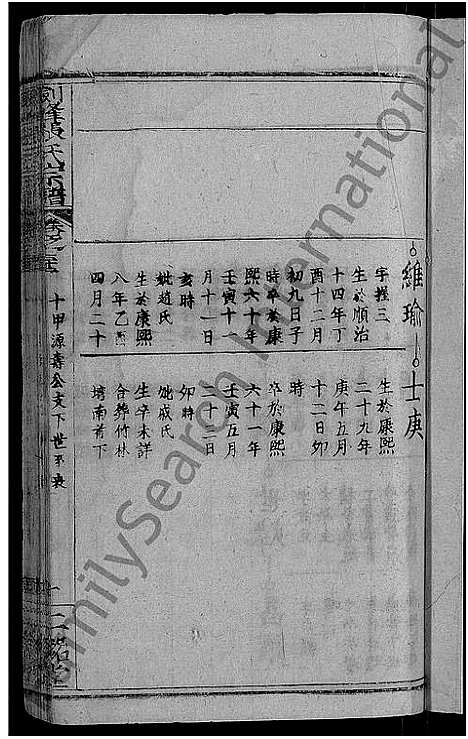 維瑜
字握三
生於順治
十四年丁
酉十二月
初九日子
時卒於康
熙六十年
壬寅十一
月十一日
亥時
妣趙氏
生於康熙
八年乙酉
四月二十
士庚
生於康熙
二十九年
庚午五月
十二日卯
時
卒於康熙
六十一年
壬寅五月
二十二日
卯時
妣戚氏
生卒未詳
合葬竹林
塆南首下
張氏宗譜
卷之五
十甲源壽公支下世系表
一
FamilySearch International